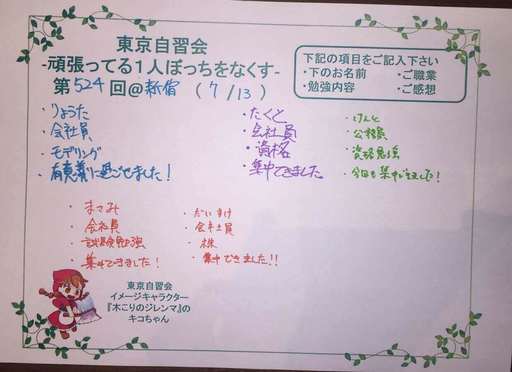 東京自習会
-頑張ってる1人ぼっちをなくす-
第524回@新宿 (7/13)
下記の項目をご記入下さい
・下のお名前 ・ご職業
・勉強内容 ・ご感想
・りょうた
・会社員
・モデリング
・有意義に過ごせました!
・たくと
・会社員
・資格
・集中できました。
・けんと
・公務員
・資格勉強
・今回も集中できました!
・まさみ
・会社員
・試験勉強
・集中できました!
・だいすけ
・会社員
・株
・集中できました!!
東京自習会
イメージキャラクター
『木こりのジレンマ』の
キコちゃん